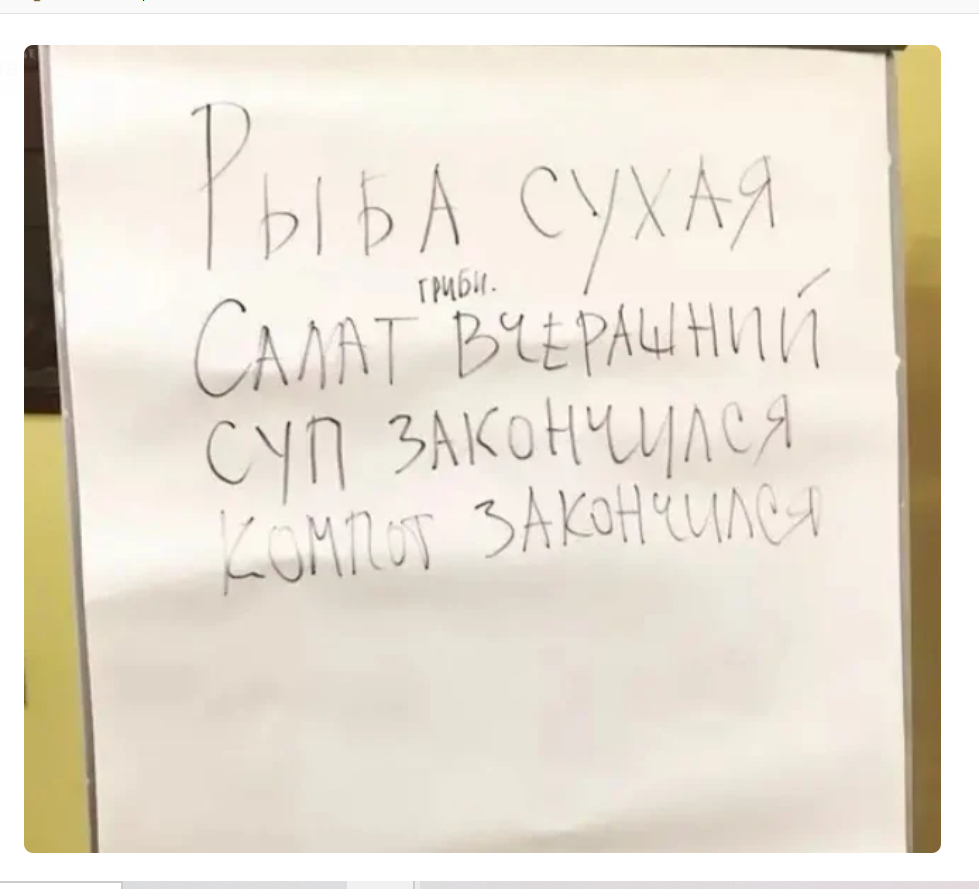 РЫБА СУХАЯ
ГРИБН.
САЛАТ ВЧЕРАШНИЙ
СУП ЗАКОНЧИЛСЯ
КОМПОТ ЗАКОНЧИЛСЯ